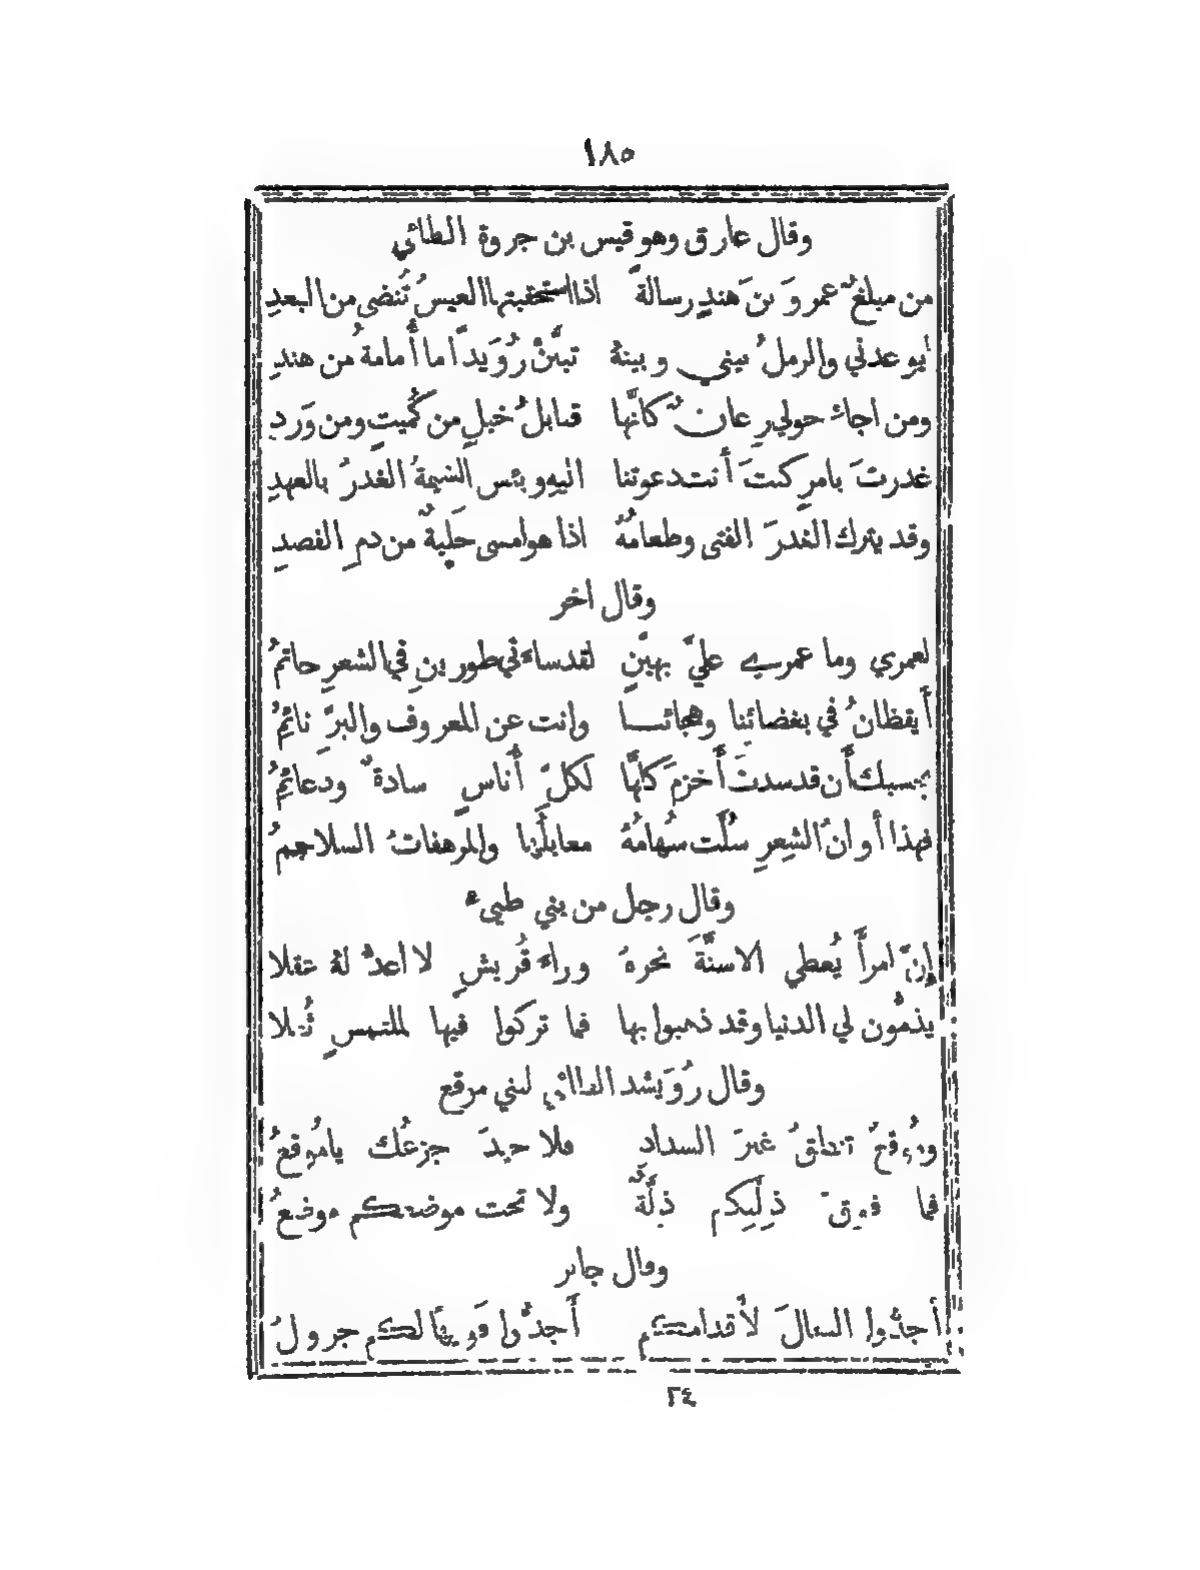 ١٨٥
وقال عارق وهو قيس بن جروة الطائي
من مبلغٌ عمروَ بنَ هندٍ رسالةً اذا استحقبتها العيسُ تُنضى من البعدِ
أيوعدني والرملُ بيني وبينهُ تبيَّنْ رُوَيداً ما أُمامةُ من هندِ
ومن اجاءٍ حولي رعانٌ كانَّها قنابلُ خيلٍ من كُميتٍ ومن وَردِ
غدرتَ بامرٍ كنتَ أنت دعوتنا اليهِ وبئس الشيمةُ الغدرُ بالعهدِ
وقد يترك الغدرَ الفتى وطعامُهُ اذا هو امسى حَلبةٌ من دمِ الفصدِ
وقال اخر
لعمري وما عمري عليَّ بهيّنٍ لقد ساءَني طورينِ في الشعرِ حاتمُ
أيقظانُ في بغضائنا وهجائنا وانت عن المعروف والبرِّ نائمُ
بحسبك أن قد سدتَ أخزمَ كلَّها لكلِّ أُناسٍ سادةٌ ودعائمُ
فهذا أوانُ الشعرِ سُلَّت سهامُهُ معابلُها والمرهفاتُ السلاجمُ
وقال رجل من بني طيىء
إنَّ امرأً يُعطي الاسنَّةَ نحرهُ وراءَ قُريشٍ لا اعدُّ لهُ عقلا
يذمُّون لي الدنيا وقد ذهبوا بها فما تركوا فيها لملتمسٍ ثُعلا
وقال رُوَيشد الطائي لبني موقع
وموُقعٌ تنطقُ غيرَ السداد فلا جيدَ جزعُك يا مُوقعُ
فما فوقَ ذلّتكم ذلَّةٌ ولا تحت موضعكم موضعُ
وقال جابر
أجدُّوا النعالَ لأَقدامكم أَجدُّوا فَويهاً لكم جرولُ
٢٤